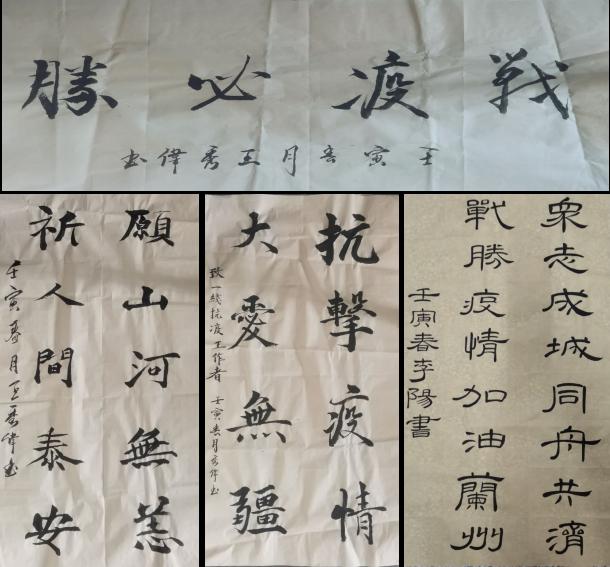 戰疫必勝
壬寅春月王秀偉书
願山河無恙
祈人間泰安
壬寅春月王秀偉书
抗擊疫情
大愛無疆
致一线抗疫工作者 壬寅春月秀偉书
衆志成城同舟共濟
戰勝疫情加油蘭州
壬寅春李陽書